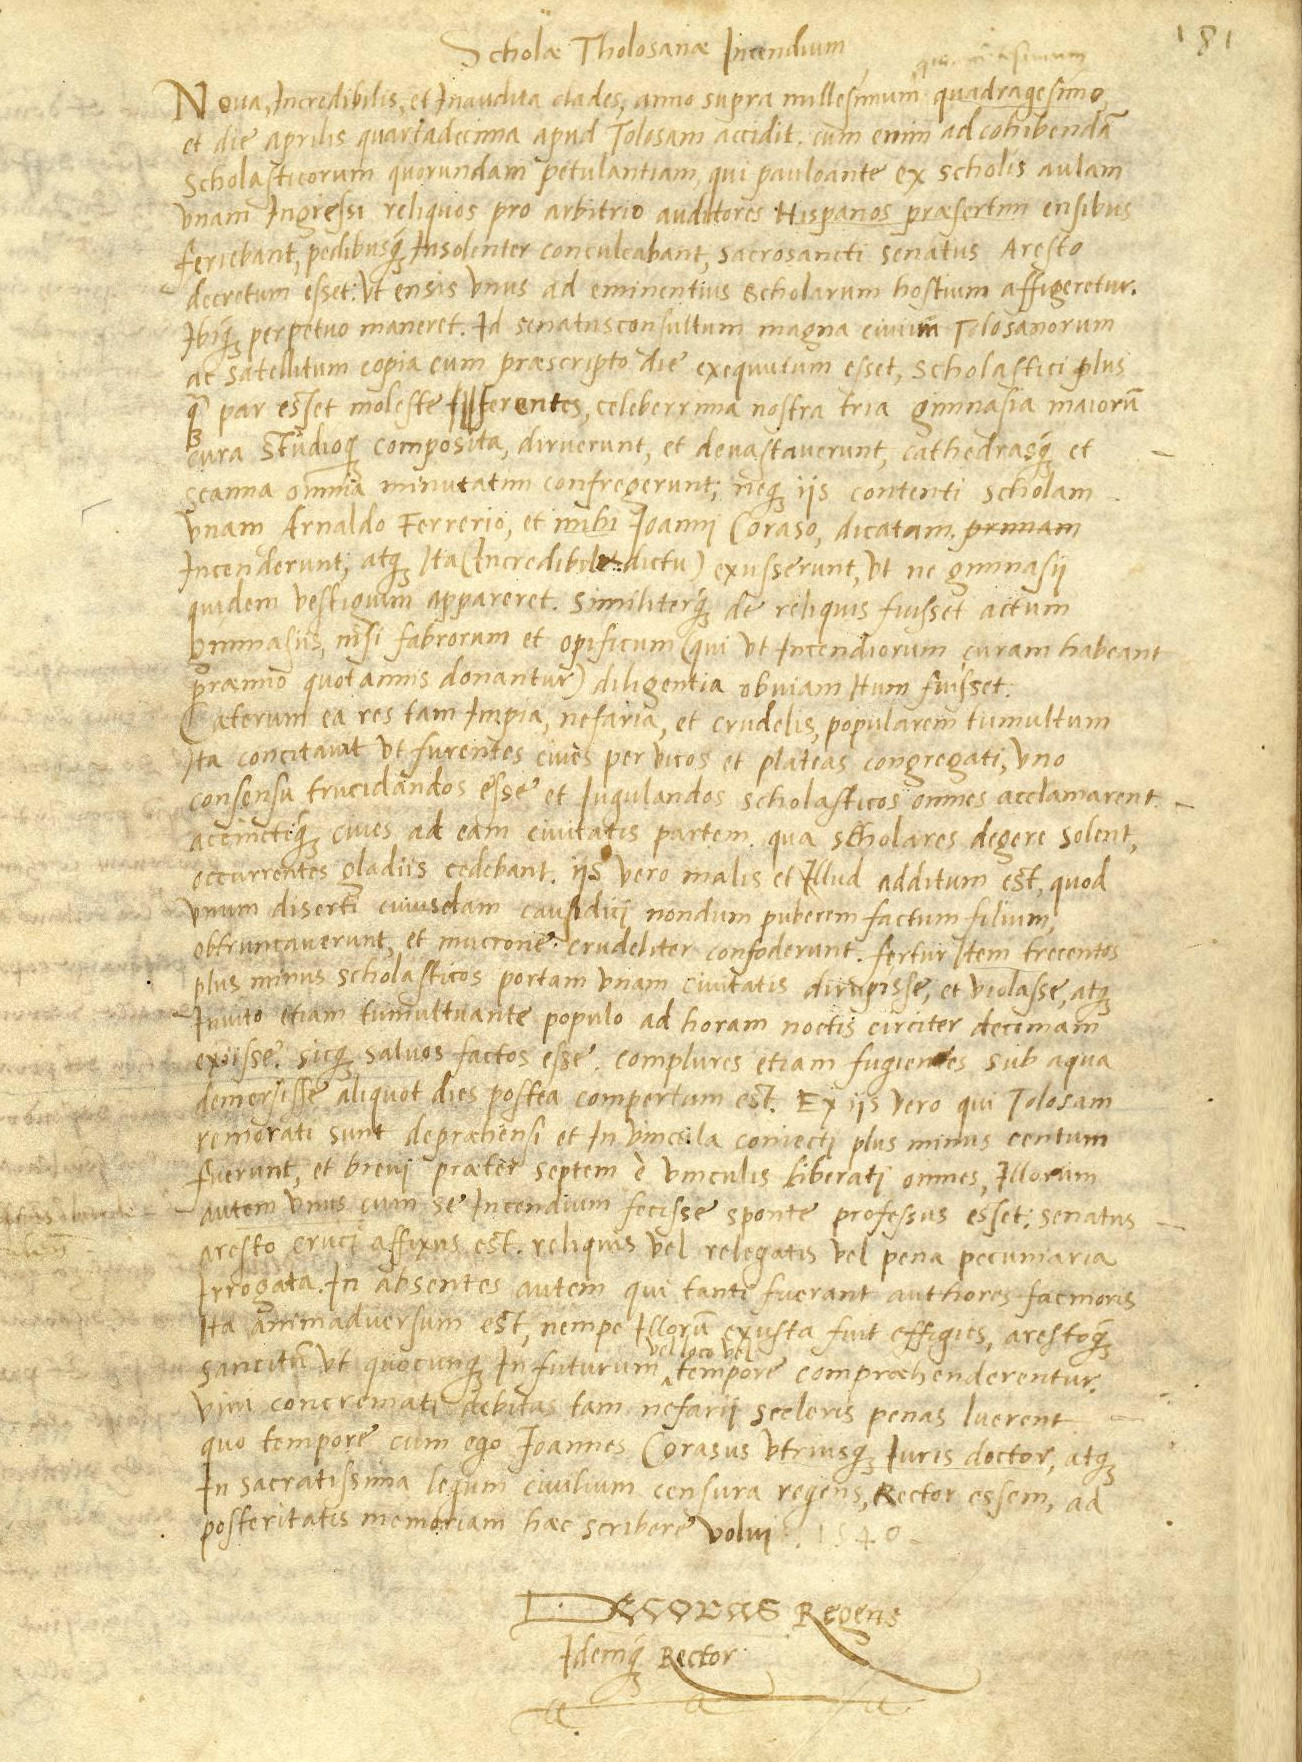 181
Scholæ Tholosanæ Incendium
Noua, Incredibilis, et Inaudita clades, anno supra millesimum quadragesimo,
et die aprilis quartadecima apud Tolosam accidit. cum enim ad cohibendā
scholasticorum quorundam petulantiam, qui pauloante ex scholis aulam
vnam Ingressi reliquos pro arbitrio auditores Hispanos præsertim ensibus
feriebant, pedibusq; Insolenter conculcabant, sacrosancti senatus Aresto
decretum esset: vt ensis vnus ad eminentius scholarum hostium affigeretur.
Ibiq; perpetuo maneret. Id senatusconsultum magna ciuium Tolosanorum
ac satellitum copia cum præscripto die exequutum esset, scholastici plus
q̄ par esset moleste ferentes, celeberrima nostra tria gimnasia maiorū
cura studioq; composita, diruerunt, et deuastauerunt, cathedrasq; et
scanna omnia minutatim confregerunt; neq; iis contenti scholam
vnam Arnaldo Ferrerio, et mihi Joanni Coraso, dicatam. primam
Incenderunt; atq; Ita (Incredibile dictu) exusserunt, vt ne gimnasii
quidem vestigium appareret. Similiterq; de reliquis fuisset actum
gimnasiis, nisi fabrorum et opificum (qui vt Incendiorum curam habeant
præmio quotannis donantur) diligentia obuiam Itum fuisset.
Cæterum ea res tam Impia, nefaria, et crudelis, popularem tumultum
Ita concitauit vt furentes ciues per vicos et plateas congregati, vno
consensu trucidandos esse et Iugulandos scholasticos omnes acclamarent
accinctiq; ciues ad eam ciuitatis partem. qua scholares degere solent,
occurrentes gladiis cedebant. iis vero malis et Illud additum est, quod
vnum diserti cuiusdam causidici nondum puberem factum filium,
obtruncauerunt, et mucrone crudeliter confoderunt. fertur Item trecentos
plus minus scholasticos portam vnam ciuitatis dirupisse, et violasse, atq;
Inuito etiam tumultuante populo ad horam noctis circiter decimam
exiisse. sicq; saluos factos esse. complures etiam fugientes sub aqua
demersisse aliquot dies postea compertum est. Ex iis vero qui Tolosam
remorati sunt depræhensi et In vincula coniecti plus minus centum
fuerunt, et breui præter septem è vinculis liberati omnes, Illorum
autem vnus cum se Incendium fecisse sponte professus esset: senatus
aresto cruci affixus est. reliquis vel relegatis vel pena pecuniaria
Irrogata. In absentes autem qui tanti fuerant authores facinoris
Ita animaduersum est, nempe Illorū exusta fuit effigies, arestoq;
sancitū vt quocunq; In futurum vel loco vel tempore compræhenderentur.
viui concremati debitas tam nefarii sceleris penas luerent
quo tempore cum ego Joannes Corasus vtriusq; Iuris doctor, atq;
In sacratissima legum ciuilium censura regens, Rector essem, ad
posteritatis memoriam hæc scribere volui. 1540
Regens
Idemq; Rector